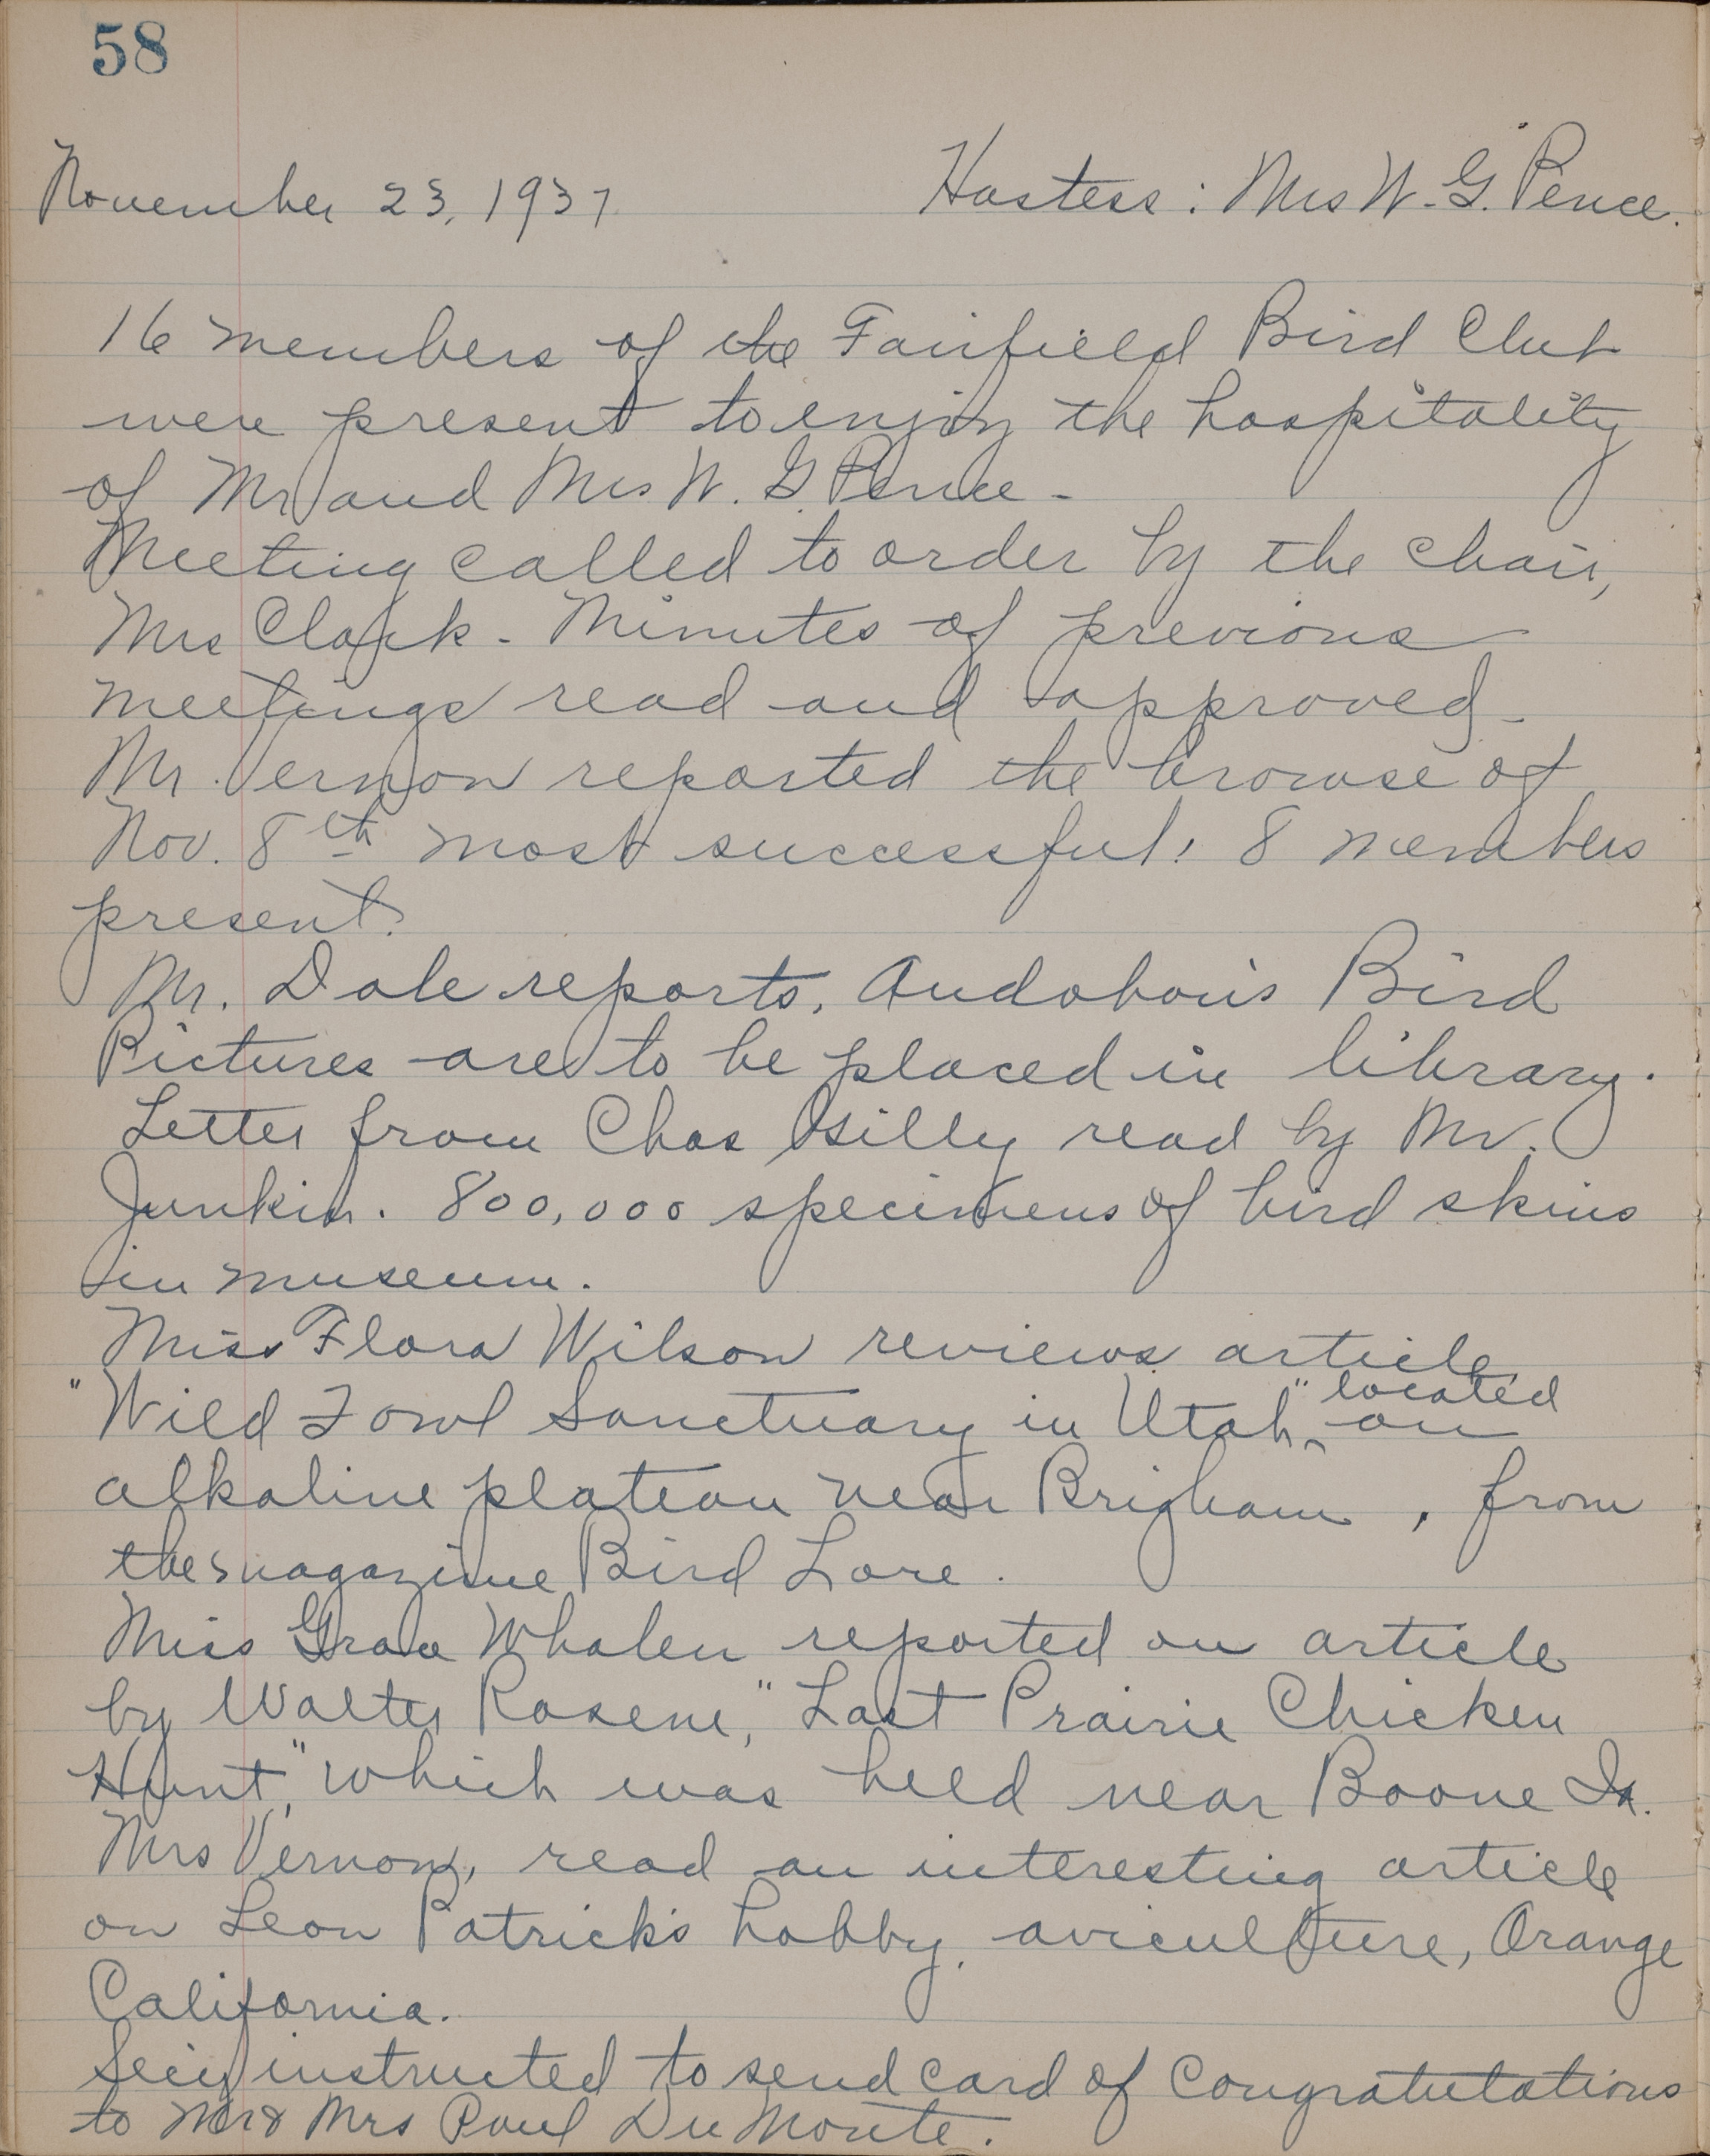 58
November 23, 1937. Hostess: Mrs W. G. Pence.
16 members of the Fairfield Bird Club
were present to enjoy the hospitality
of Mr and Mrs W. G. Pence -
Meeting called to order by the chair,
Mrs Clark - Minutes of previous
meetings read and approved -
Mr. Vernon reported the browse of
Nov. 8th most successful! 8 members
present.
Mr. Dole reports, Audobon's Bird
Pictures are to be placed in library.
Letter from Chas read by Mr.
Junkin. 800,000 specimens of bird skins
in museum.
Miss Flora Wilson reviews article,
"Wild Fowl Sanctuary in Utah" ^ located on
alkaline plateau near Brigham, from
the magazine Bird Lore.
Miss Grace Whalen reported on article
by Walter Rosene, "Last Prairie Chicken
Hunt," which was held near Boone Ia.
Mrs Vernon, read an interesting article
on Leon Patrick's hobby, aviculture, Orange
California.
Sec'y instructed to send card of Congratulations
to Mr & Mrs Paul DuMonte.